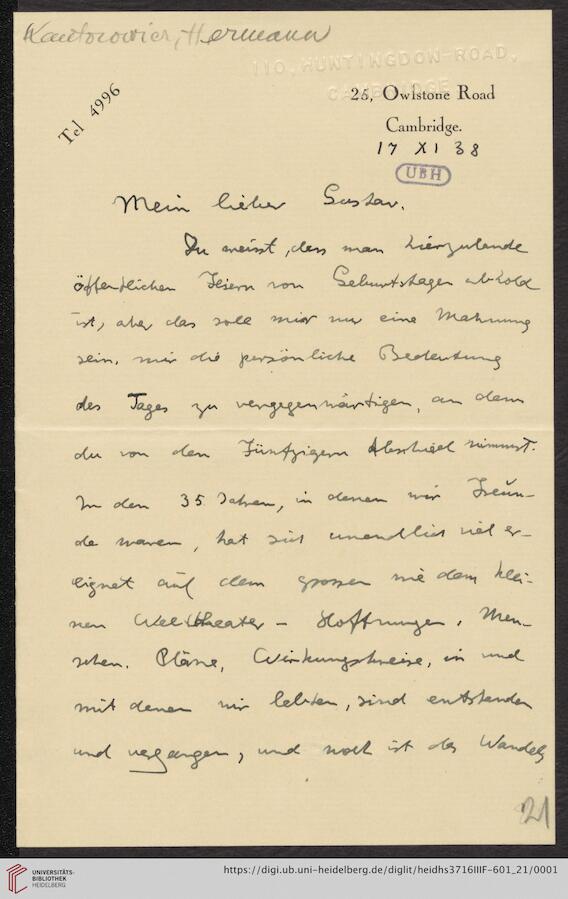 Kantorowicz, Hermann
110, HUNTINGDON ROAD,
CAMBRIDGE
Tel 4996
25, Owlstone Road
Cambridge.
17 XI 38
UBH
Mein lieber Gustav,
Du weisst, dass man hierzulande
öffentlichen Feiern von Geburtstagen abhold
ist, aber das soll mir nur eine Mahnung
sein, mir die persönliche Bedeutung
des Tages zu vergegenwärtigen, an dem
du von den Fünfzigern Abschied nimmst.
In den 35 Jahren, in denen wir Freun-
de waren, hat sich unendlich viel er-
eignet auf dem grossen wie dem klei-
nen Welttheater – Hoffnungen, Men-
schen, Pläne, Wirkungskreise, in und
mit denen wir lebten, sind entstanden
und vergangen, und noch ist des Wandels
21
UNIVERSITÄTS-
BIBLIOTHEK
HEIDELBERG
https://digi.ub.uni-heidelberg.de/diglit/heidhs3716IIIF-601_21/0001